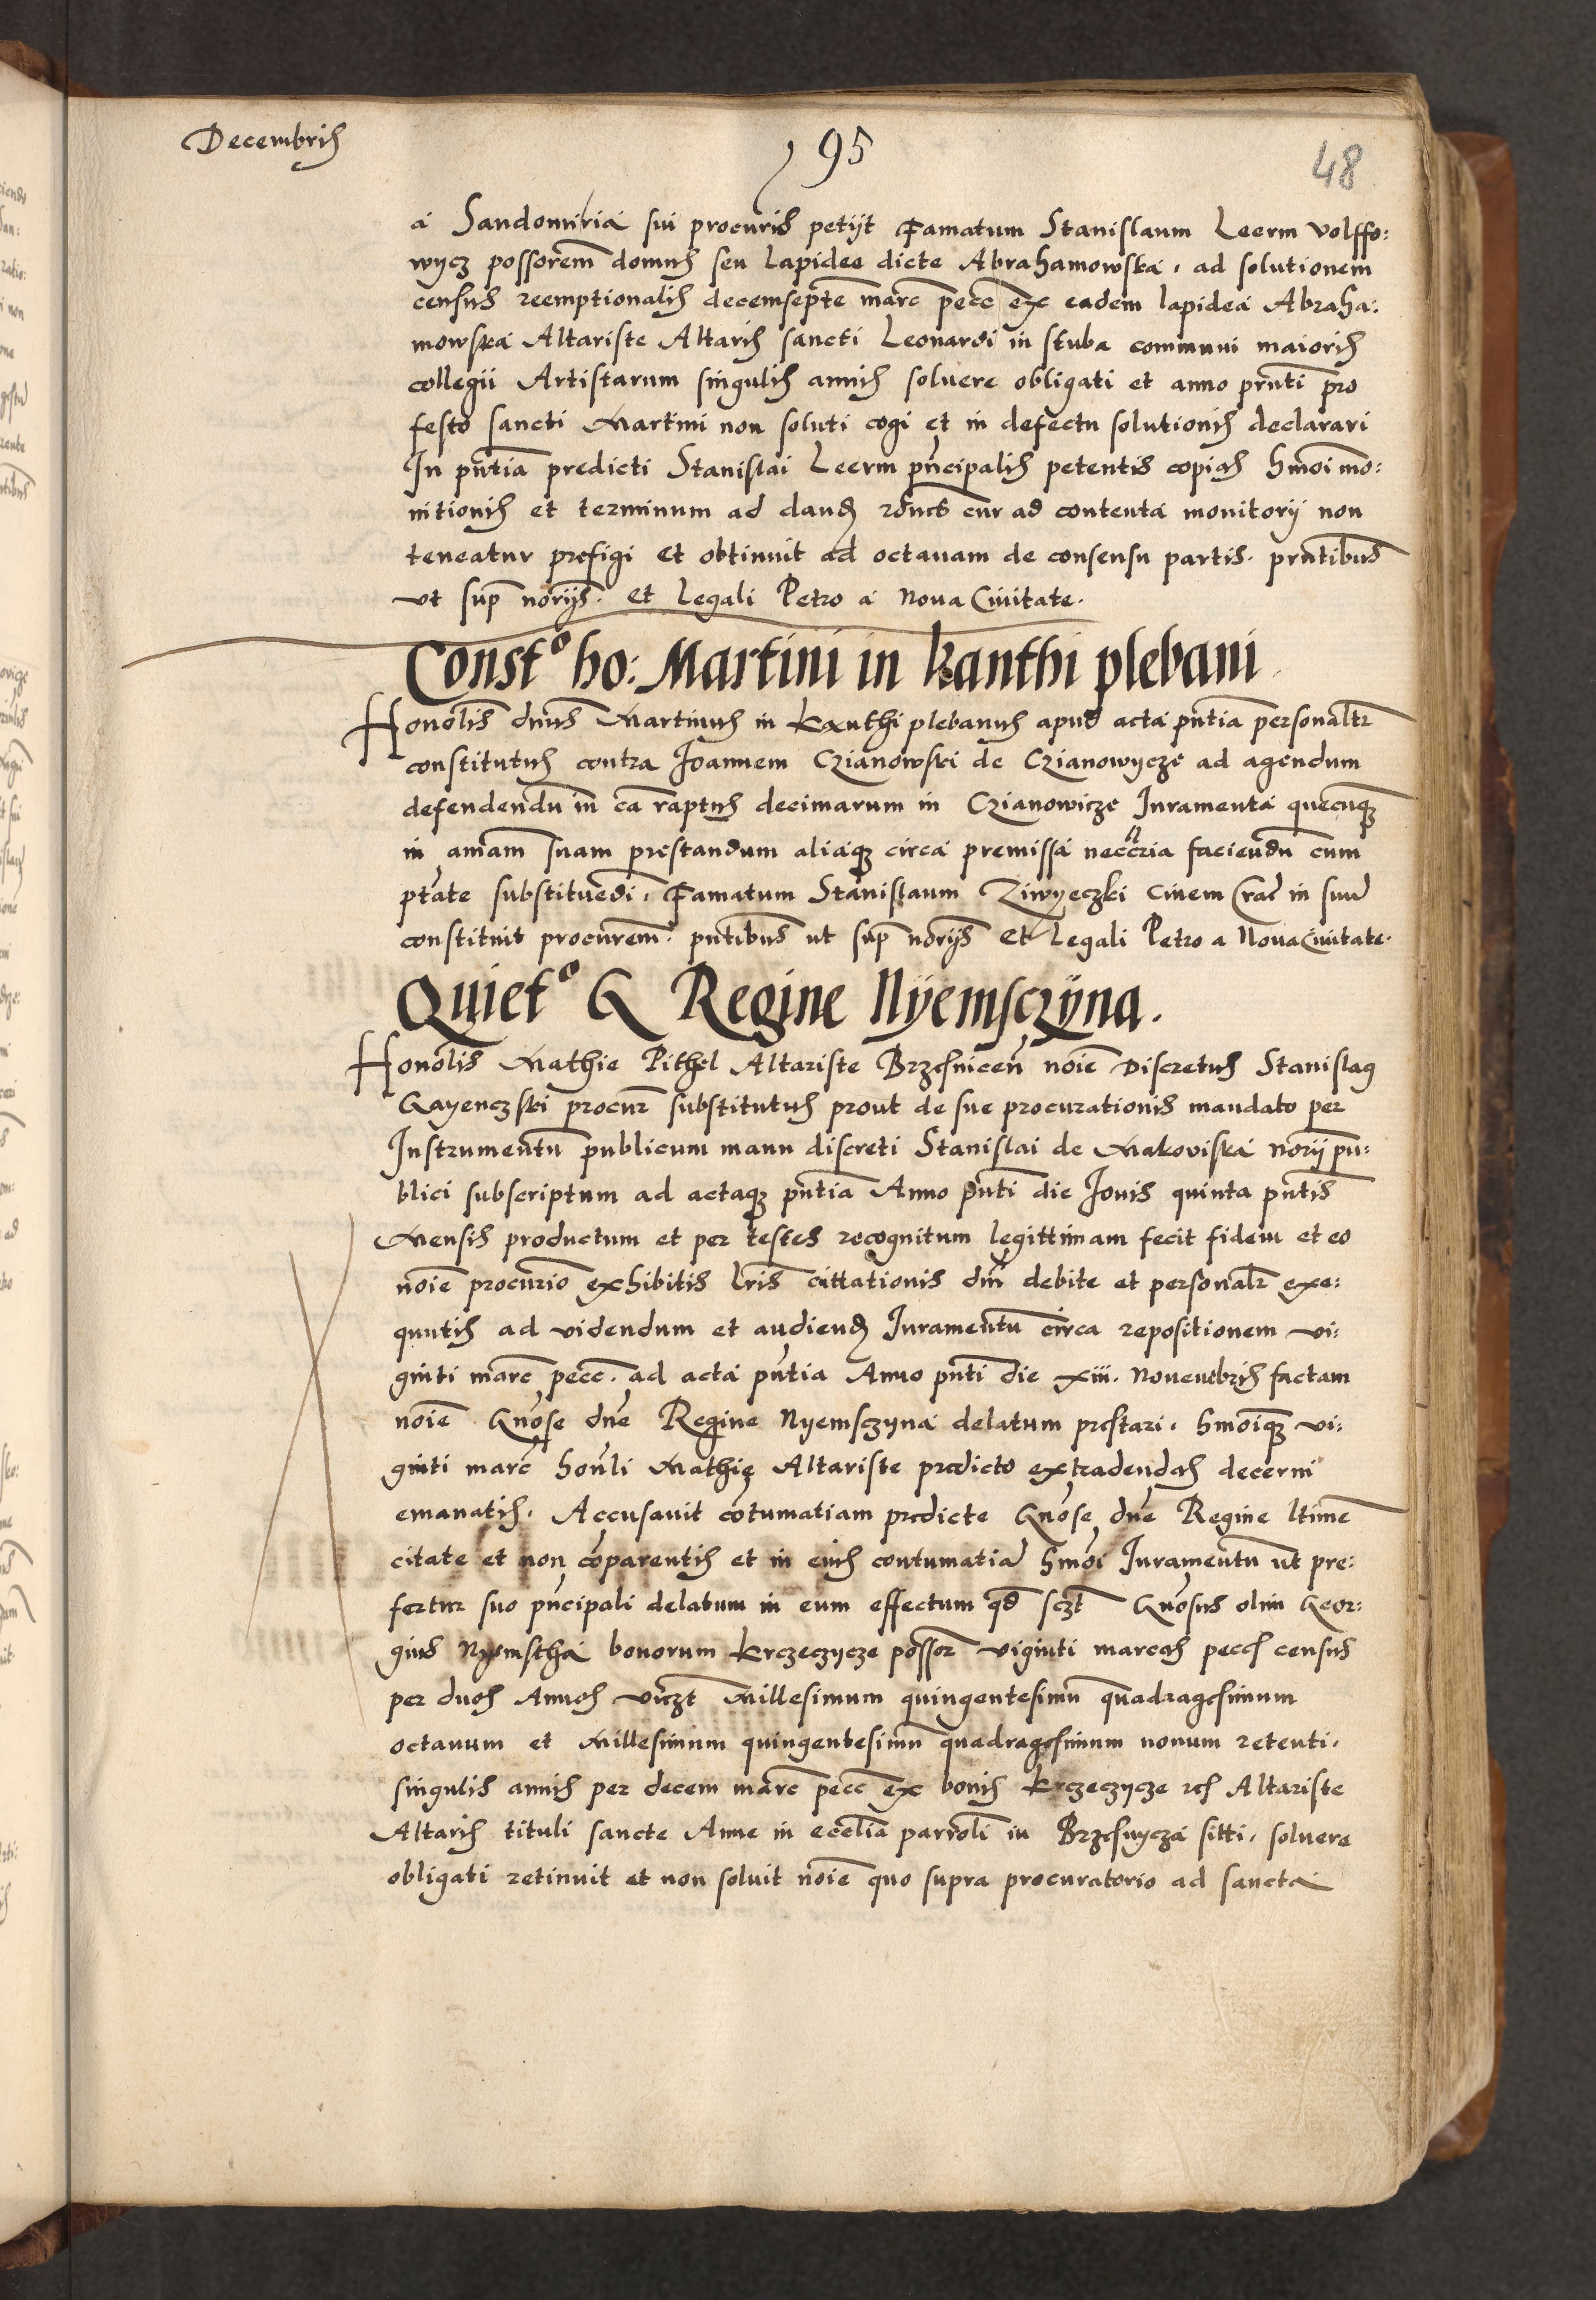 Decembris
95
48
a Sandomiria sui procuris petijt Famatum Stanislaum Leerm Volffo:
wycz possorem domus seu lapidee dicte Abrahamowska, ad solutionem
census reemptionalis decemseptē marc pecc ex eadem lapidea Abraha:
mowska Altariste Altaris sancti Leonardi in stuba communi maioris
collegii Artistarum singulis annis soluere obligati et anno prnti pro
festo sancti Martini non soluti cogi et in defectu solutionis declarari
In pntia predicti Stanislai Leerm pncipalis petentis copias hmoi mo:
nitionis et terminum ad dand rdnes cur ad contenta monitorij non
teneatur prefigi et obtinuit ad octauam de consensu partis. prntibus
ut sup norijs. et Legali Petro a Noua Ciuitate.
Constº ho: Martini in Kanthi plebani
Honolis dnus Martinus in Kanthi plebanus apud acta pntia personaltr
constitutus contra Joannem Czianowski de Czianowycze ad agendum
defendendu in ca raptus decimarum in Czianowicze Juramenta quecuqz
in amam suam prestandum aliaqz circa premissa neccria faciendu cum
ptate substituedi, Famatum Stanislaum Ziwyeczki ciuem Crac in suu
constituit procurem. pntibus ut sup norijs et Legali Petro a Noua Ciuitate.
Quietº G Regine Nyemsczyna.
Honolis Mathie Pithel Altariste Brzesnicen noie Discretus Stanislaus
Gayenczski procur substitutus prout de sue procurationis mandato per
Instrumentu publicum manu discreti Stanislai de Makoviska norij pu:
blici subscriptum ad actaqz pntia Anno pnti die Jouis quinta pntis
Mensis productum et per testes recognitum legittimam fecit fidem et eo
noie procurio exhibitis lris cittationis dni debite et personalr exe:
qūutis ad videndum et audiend Juramentu circa repositionem vi:
ginti marc pecc. ad acta pntia Anno pnti die xiii. Nouembris factam
noie Gnose dne Regine Nyemsczyna delatum prestari, hmoiqz vi:
ginti marc honli Mathie Altariste predicto extradendas decerni
emanatis. Accusauit cotumatiam predicte Gnose dne Regine ltime
citate et non coparentis et in eius contumatia hmoi Juramentu ut pre:
fertur suo pncipali delatum in eum effectum qd sczt Gnosus olim Geor:
gius Nyemstha bonorum Krczeczycze possor viginti marcas pecc census
per duos Annos viczt Millesimum quingentesimu quadragesimum
octauum et Millesimum quingentesimu quadragesimum nonum retenti,
singulis annis per decem marc pecc ex bonis Krczeczycze Altariste
Altaris tituli sancte Anne in ecclia parroli in Brzesnycza sitti, soluere
obligati retinuit et non soluit noie quo supra procuratorio ad sancta